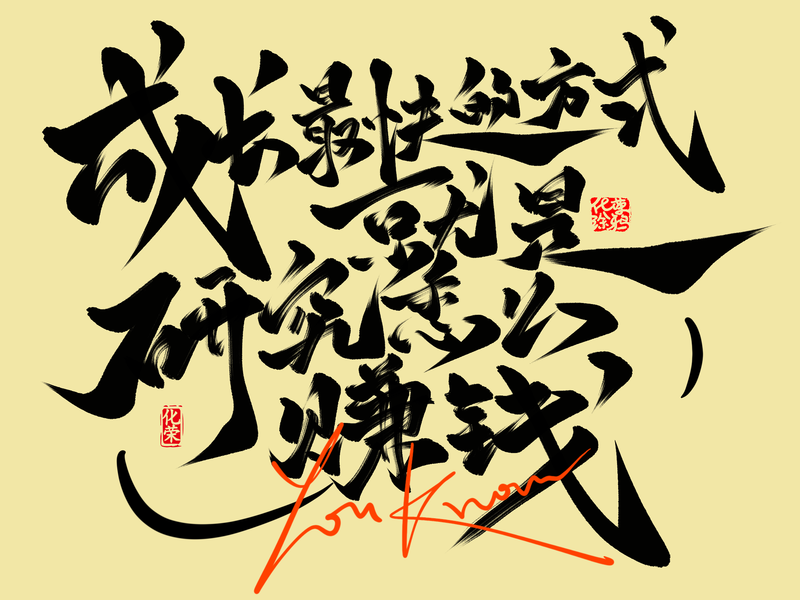 成长最快的方式
就是
研究怎么
赚钱
You Know
化荣